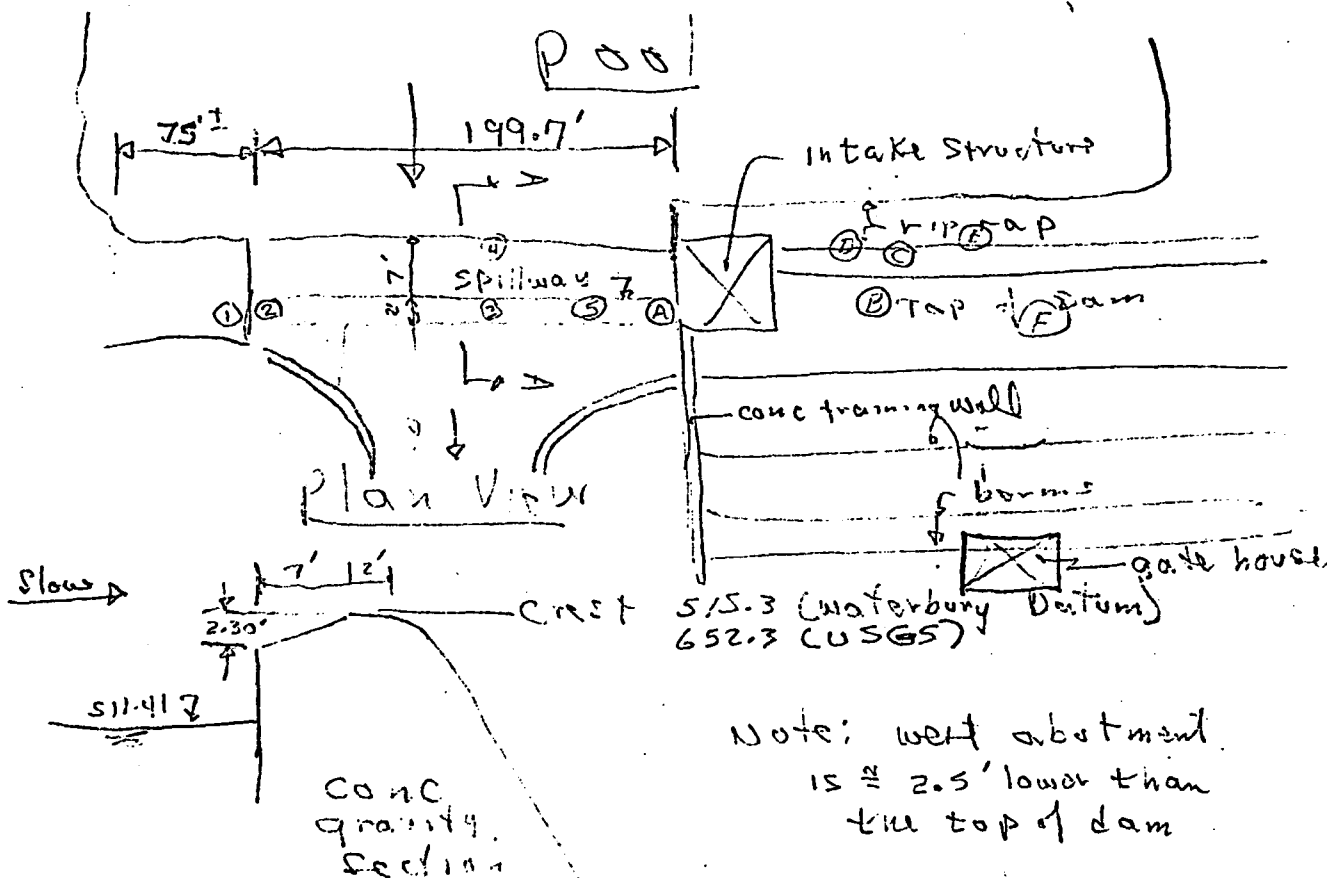 Pool
75'±
199.7'
Intake Structure
A
rip rap
D
C
E
4
7'
2'
spillway
1
2
3
5
A
B
Top of Dam
F
A
conc training wall
Plan View
berms
gate house
flow
7'
2'
2.30'
Crest 515.3 (Waterbury Datum)
652.3 (USGS)
511.41
Conc
gravity
section
Note: west abutment
is ≅ 2.5' lower than
the top of dam